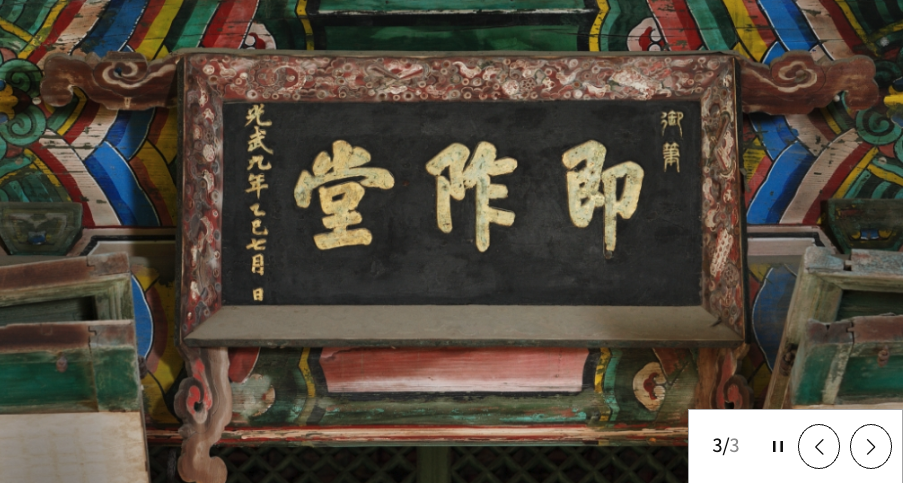 御筆
即阼堂
光武九年乙巳七月 日
3/3